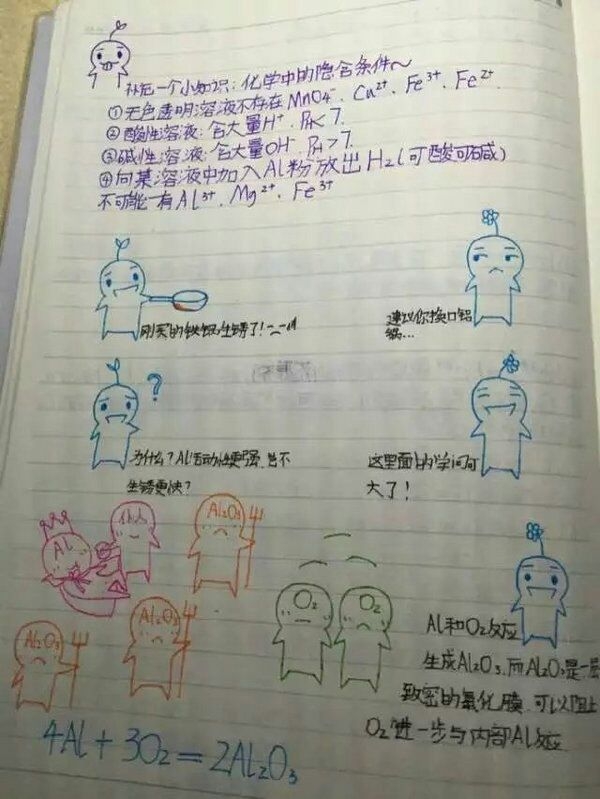 补充一个小知识：化学中的隐含条件～
①无色透明溶液不存在MnO₄⁻、Cu²⁺、Fe³⁺、Fe²⁺
②酸性溶液：含大量H⁺、PH<7.
③碱性溶液：含大量OH⁻、PH>7.
④向某溶液中加入Al粉放出H₂(可酸可碱)
不可能有Al³⁺、Mg²⁺、Fe³⁺
刚买的铁锅生锈了！
建议你换口铝
锅...
?
为什么？Al活动性更强，岂不
生锈更快？
这里面的学问可
大了！
Al
Al₂O₃
Al₂O₃
Al₂O₃
O₂
O₂
Al和O₂反应
生成Al₂O₃，而Al₂O₃是一层
致密的氧化膜，可以阻止
O₂进一步与内部Al反应
4Al+3O₂=2Al₂O₃